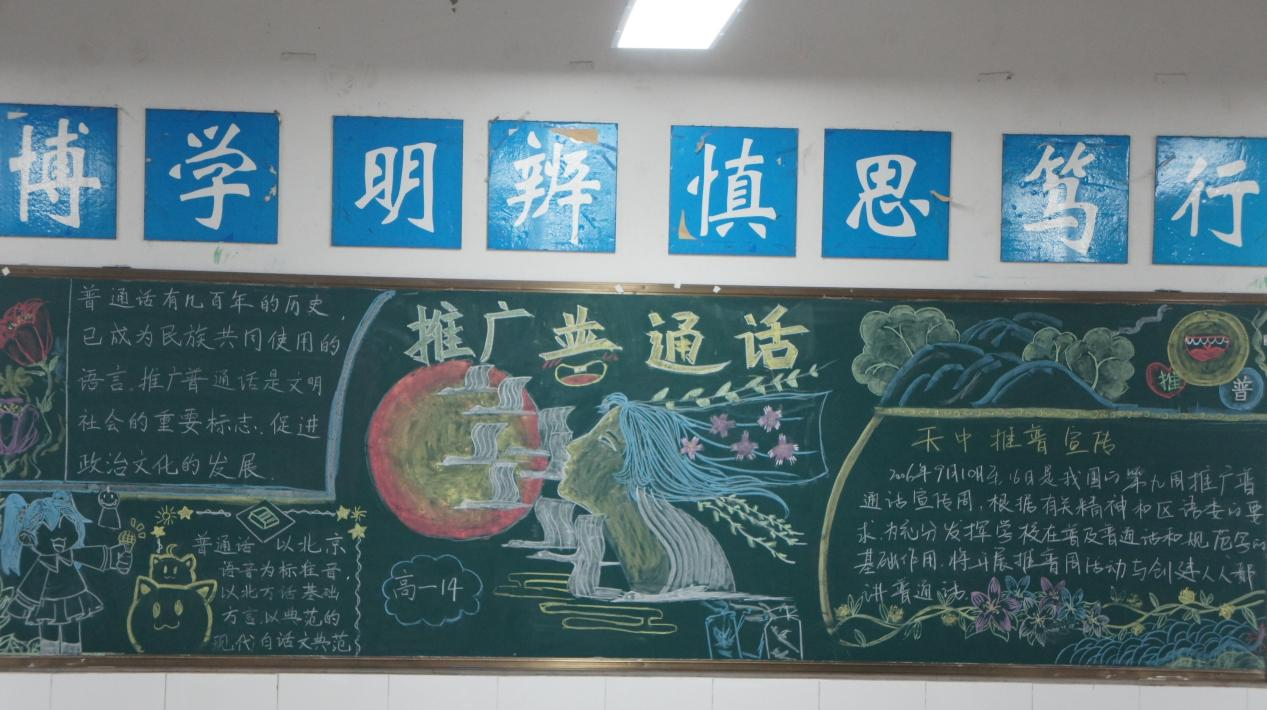 博学明辨慎思笃行
推广普通话
普通话有几百年的历史,
已成为民族共同使用的
语言.推广普通话是文明
社会的重要标志.促进
政治文化的发展.
普通话 以北京
语音为标准音,
以北方话基础
方言.以典范的
现代白话文典范
高一14
推
普
天中推普宣传
2006年9月10日至16日是我国的第九周推广普
通话宣传周.根据有关精神和区语委的要
求.为充分发挥学校在普及普通话和规范字的
基础作用.将开展推普周活动与创建人人都
讲普通话